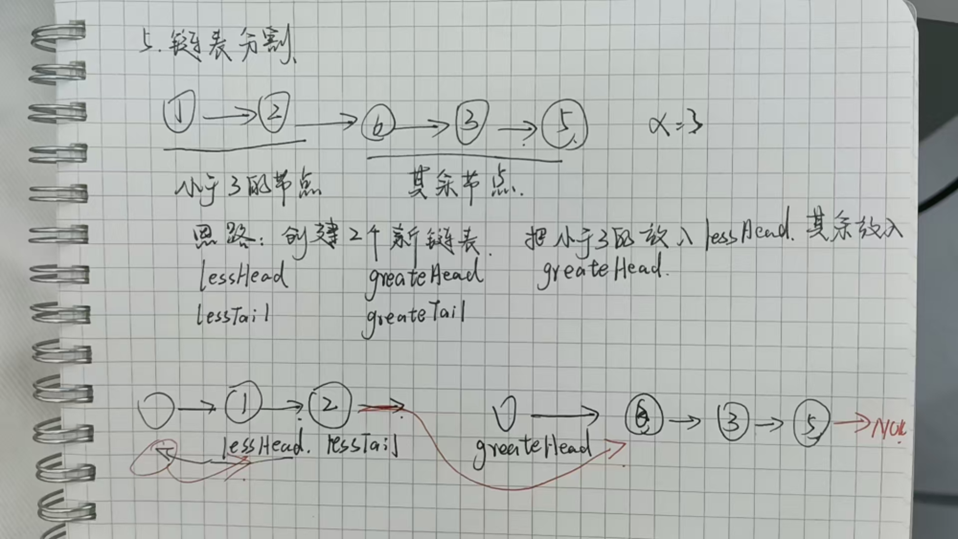 5. 链表分割
① → ② → ⑥ → ③ → ⑤ x=3
小于3的节点 其余节点.
思路: 创建2个新链表. 把小于3的放入lessHead. 其余放入
lessHead greateHead greateHead.
lessTail greateTail
① → ② → ⑥ → ③ → ⑤ → NULL
lessHead. lessTail greateHead